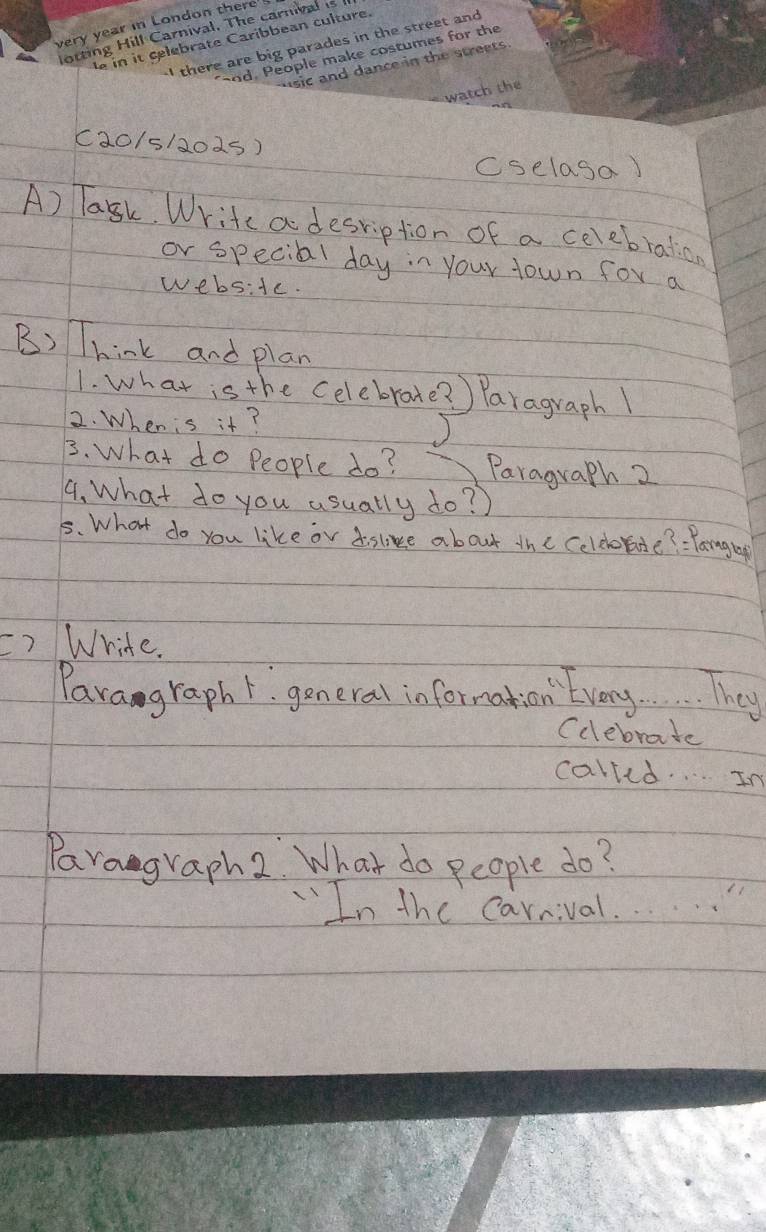 very year in London there's
lotting Hill Carnival. The carnival is
le in it celebrate Caribbean culture.
there are big parades in the street and
People make costumes for the
and dance in the streets.
watch the
(20/5/2025)
(selasa)
A) Task. Write a desription of a celebration
or special day in your town for a
website.
B) Think and plan
1. What is the celebrate? ) Paragraph 1
2. When is it?
3. What do People do? Paragraph 2
4. What do you usually do?)
5. What do you like or dislike about the
C) Write.
Paragraph 1. general information "Every....... They
Celebrate
called..... In
Paragraph 2. What do people do?
"In the Carnival......."